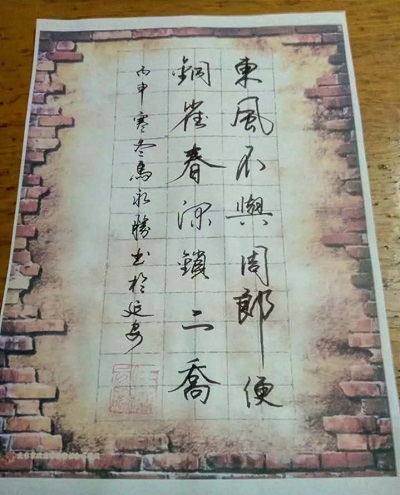 東風不與周郎便
銅雀春深鎖二喬
丙申寒冬馬永勝书於延安